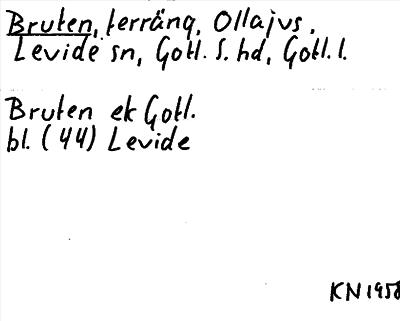 Bruten, terräng, Ollajvs,
Levide sn, Gotl. S. hd, Gotl. l.
Bruten ek Gotl.
bl. (44) Levide
KN 1958